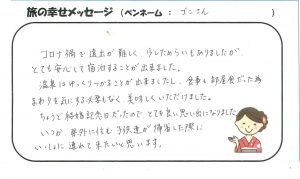 旅の幸せメッセージ (ペンネーム : ゴンさん )
コロナ禍で遠出が難しく、少しためらいもありましたが
とても安心して宿泊することが出来ました。
温泉にゆっくりつかることが出来ましたし、食事も部屋食だった為
まわりを気にする必要もなく、美味しくいただけました。
ちょうど結婚記念日だったので、とても良い思い出になりました。
いつか、県外に住む子供達が帰省した際に
いっしょに連れて来たいと思います。